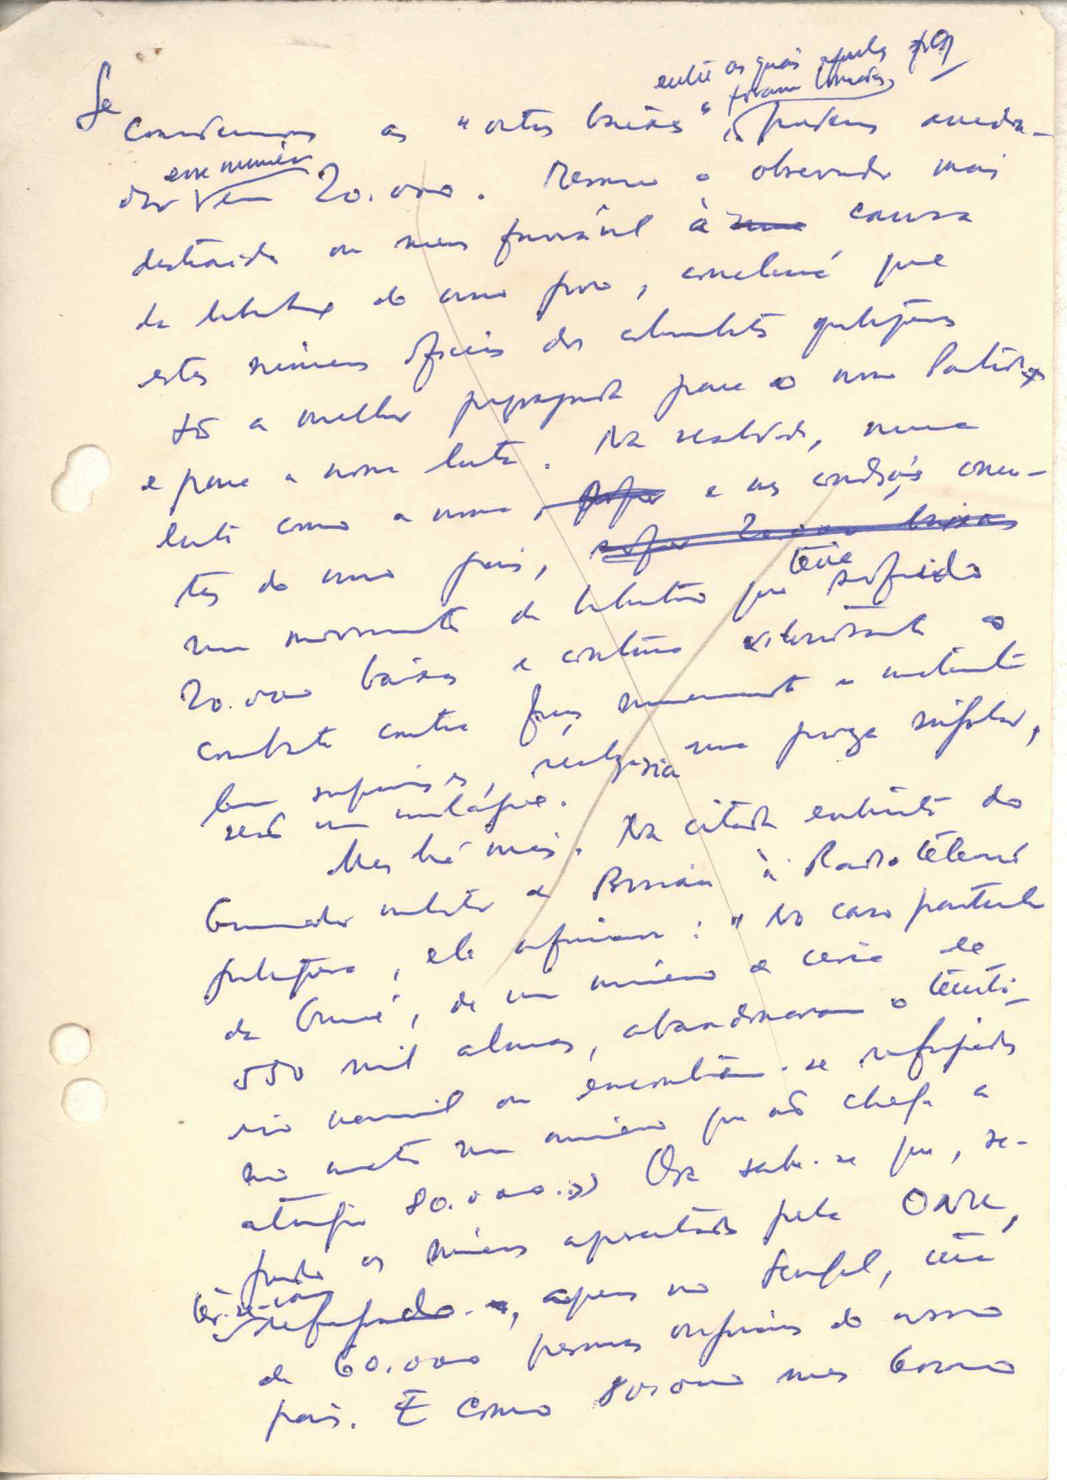 entre os quais
Se
considerarmos as "outras baixas", podemos arredon-
dar esse número em 20.000. Mesmo o observador mais
distraído ou menos favorável à causa
da libertação do nosso povo, concluirá que
estes números oficiais dos colonialistas portugueses
são a melhor propaganda para o nosso Partido
e para a nossa luta. Na realidade, numa
luta como a nossa, e nas condições concre-
tas do nosso país,
um movimento de libertação que teve sofrido
20.000 baixas e continua vitoriosamente o
combate contra forças numericamente e materialmente
bem superiores, realizaria uma proeza singular,
seria um milagre.
Mas há mais. Na citada entrevista do
Governador militar de Bissau à Radiotelevisão
portuguesa, ele afirmou: "No caso particular
da Guiné, de um número de cerca de
550 mil almas, abandonaram o territó-
rio nacional ou encontram-se refugiados
no mato um número que não chega a
atingir 80.000." Ora sabe-se que, se-
gundo os números apresentados pela ONU,
refugiado, apenas no Senegal, cerca
de 60.000 pessoas originárias do nosso
país. E como 80.000 mesmo